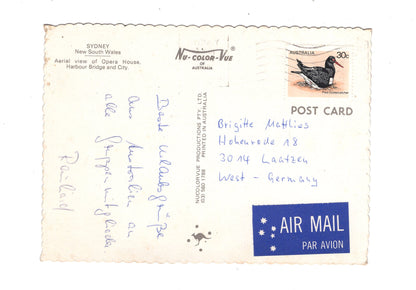 SYDNEY
New South Wales
Aerial view of Opera House,
Harbour Bridge and City.
NU-COLOR-VUE
OF
AUSTRALIA
AUSTRALIA
30c
Pied Oystercatcher
POST CARD
NUCOLORVUE PRODUCTIONS PTY. LTD.
(03) 560 1788 PRINTED IN AUSTRALIA
Beste Urlaubsgrüße
aus Australien an
alle Gruppenmitglieder.
Brigitte Matthies
Hohenrode 18
3014 Laatzen
West-Germany
AIR MAIL
PAR AVION